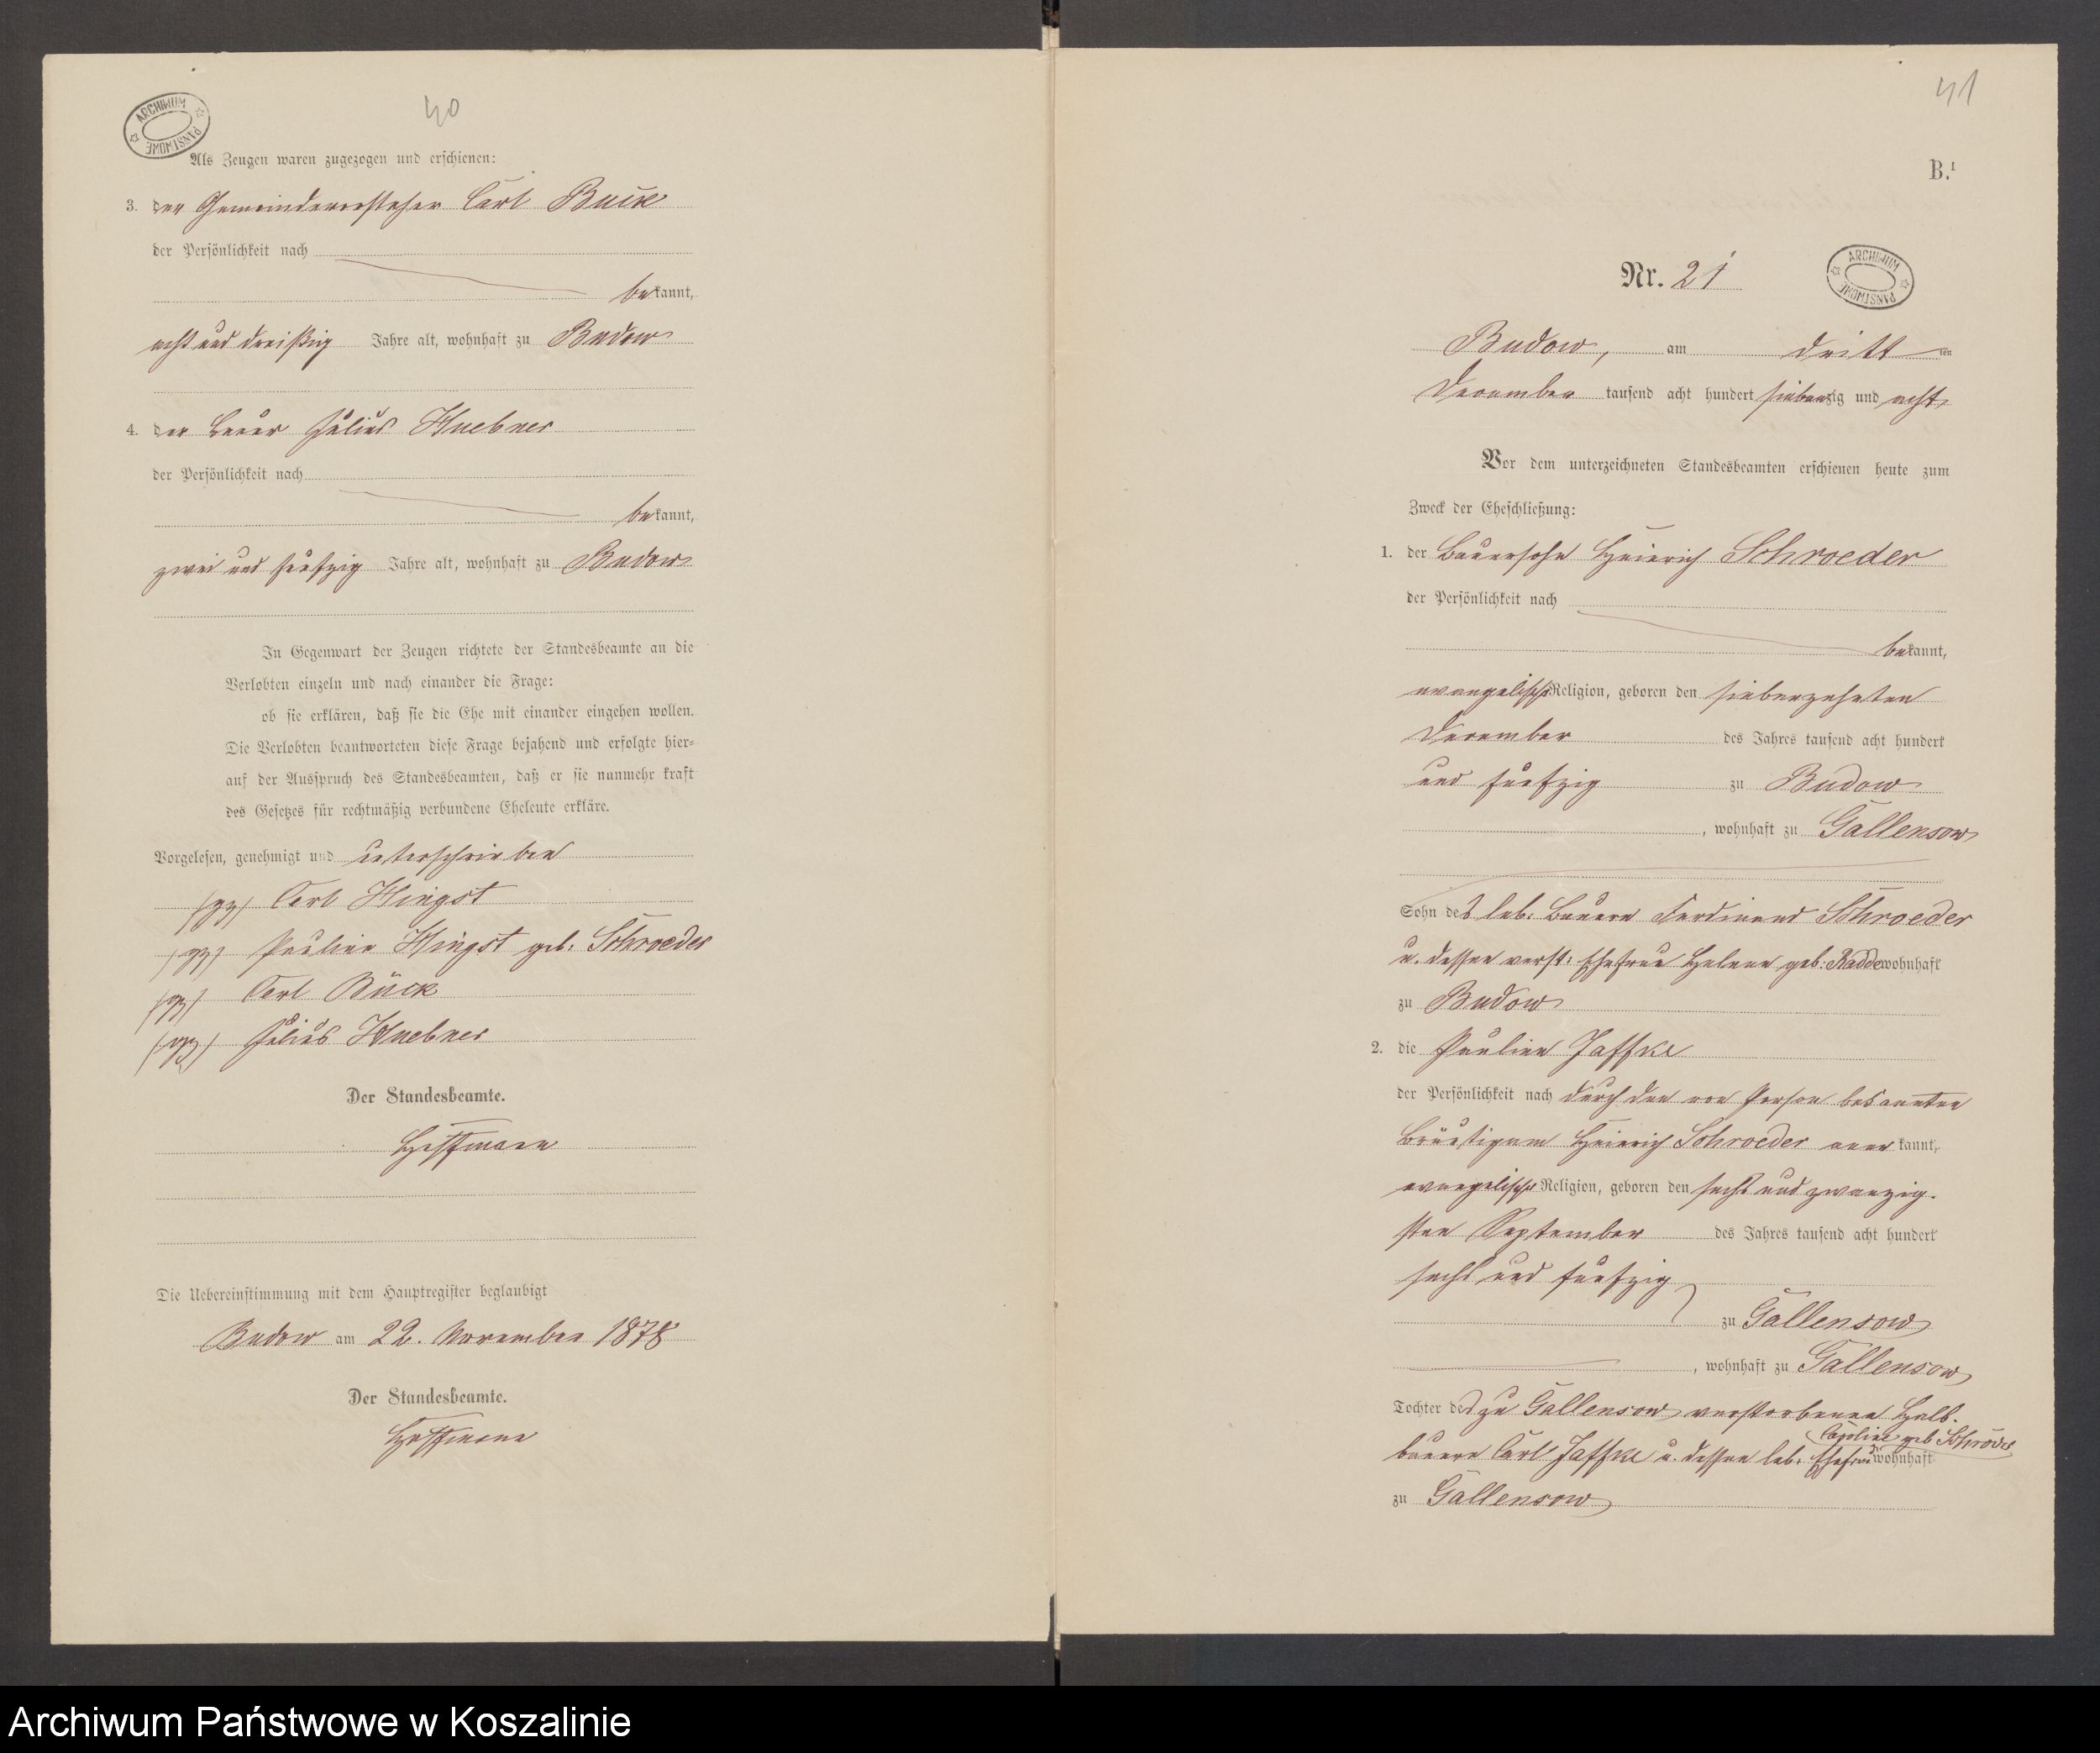 40
ARCHIWUM PAŃSTWOWE
Als Zeugen waren zugezogen und erschienen:
3. der Gemeindevorsteher Carl Buck
der Persönlichkeit nach
bekannt,
acht und dreißig Jahre alt, wohnhaft zu Budow
4. der Bauer Julius Huebner
der Persönlichkeit nach
bekannt,
zwei und fünfzig Jahre alt, wohnhaft zu Budow
In Gegenwart der Zeugen richtete der Standesbeamte an die
Verlobten einzeln und nach einander die Frage:
ob sie erklären, daß sie die Ehe mit einander eingehen wollen.
Die Verlobten beantworteten diese Frage bejahend und erfolgte hier-
auf der Ausspruch des Standesbeamten, daß er sie nunmehr kraft
des Gesetzes für rechtmäßig verbundene Eheleute erkläre.
Vorgelesen, genehmigt und unterschrieben
(gz) Carl Hingst
(gz) Pauline Hingst geb. Schroeder
(gz) Carl Bück
(gz) Julius Huebner
Der Standesbeamte.
Hoffmann
Die Uebereinstimmung mit dem Hauptregister beglaubigt
Budow am 22. November 1878
Der Standesbeamte.
Hoffmann
41
B.¹
Nr. 21
ARCHIWUM PAŃSTWOWE
Budow, am dritt ten
December tausend acht hundert siebenzig und acht
Vor dem unterzeichneten Standesbeamten erschienen heute zum
Zweck der Eheschließung:
1. der Bauersohn Heinrich Schroeder
der Persönlichkeit nach
bekannt,
evangelischer Religion, geboren den siebenzehnten
December des Jahres tausend acht hundert
und fünfzig zu Budow
, wohnhaft zu Gallensow
Sohn des leb. Bauern Ferdinand Schroeder
u. dessen verst. Ehefrau Helene geb. Radde wohnhaft
zu Budow
2. die Pauline Jaffke
der Persönlichkeit nach durch den von Person bekannten
Bräutigam Heinrich Schroeder anerkannt,
evangelischer Religion, geboren den sechs und zwanzig-
sten September des Jahres tausend acht hundert
sechs und fünfzig
zu Gallensow
, wohnhaft zu Gallensow
Tochter des zu Gallensow verstorbenen Halb-
bauern Carl Jaffke u. dessen leb. Ehefrau Caroline geb Schröder wohnhaft
zu Gallensow
Archiwum Państwowe w Koszalinie